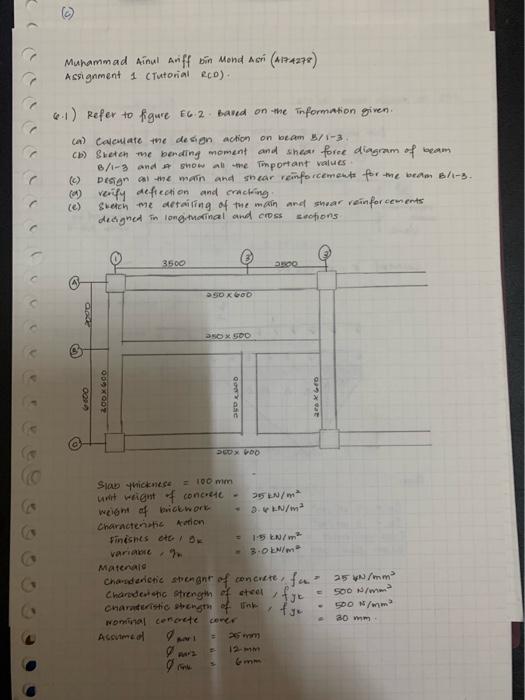 (c)
Muhammad Ainul Ariff bin Mohd Asri (A174278)
Assignment 1 (Tutorial RCD).
6.1) Refer to figure E6.2. Based on the information given.
(a) Calculate the design action on beam B/1-3.
(b) Sketch the bending moment and shear force diagram of beam
B/1-3 and show all the important values.
(c) Design all the main and shear reinforcements for the beam B/1-3.
(d) verify deflection and cracking.
(e) Sketch the detailing of the main and shear reinforcements
designed in longitudinal and cross sections
1 2 3
3500 2500
A
250 x 600
250 x 500
B
6000 200 x 600 250 x 600 200 x 600
C
250 x 600
Slab thickness = 100 mm
Unit weight of concrete = 25 kN/m²
Weight of brickwork = 2.6 kN/m²
Characteristic Action
Finishes etc, gk = 1.5 kN/m²
variable, qk = 3.0 kN/m²
Materials
Characteristic strength of concrete, fck = 25 N/mm²
Characteristic strength of steel, fyk = 500 N/mm²
Characteristic strength of link, fyk = 500 N/mm²
Nominal concrete cover = 30 mm.
Assumed Ø bar1 = 25 mm
Ø bar2 = 12 mm
Ø link = 6 mm